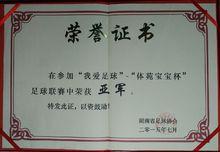 荣誉证书
在参加“我爱足球”-“体苑宝宝杯”
足球联赛中荣获 亚军。
特发此证，以资鼓励！
湖南省足球协会
二零一五年七月